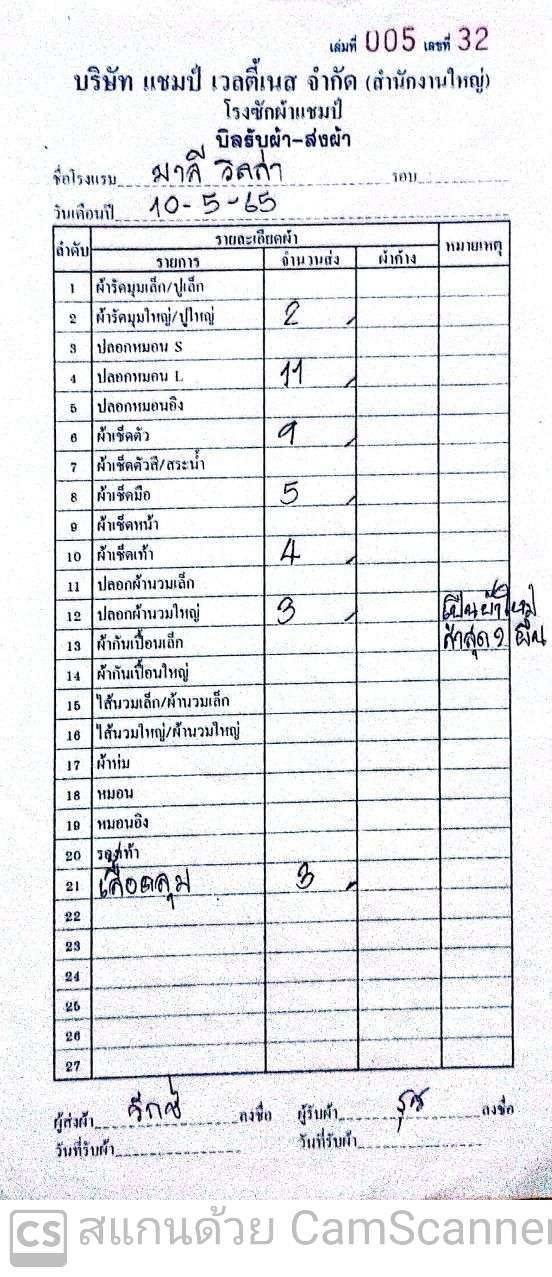 เล่มที่ 005 เลขที่ 32
บริษัท แชมป์ เวลตี้เนส จำกัด (สำนักงานใหญ่)
โรงซักผ้าแชมป์
บิลรับผ้า-ส่งผ้า
ชื่อโรงแรม มาลี วิลล่า รอบ
วันเดือนปี 10-5-65
ลำดับ รายละเอียดผ้า หมายเหตุ
รายการ จำนวนส่ง ผ้าค้าง
1 ผ้ารัดมุมเล็ก/ปูเล็ก
2 ผ้ารัดมุมใหญ่/ปูใหญ่ 2
3 ปลอกหมอน S
4 ปลอกหมอน L 11
5 ปลอกหมอนอิง
6 ผ้าเช็ดตัว 9
7 ผ้าเช็ดตัวสี/สระน้ำ
8 ผ้าเช็ดมือ 5
9 ผ้าเช็ดหน้า
10 ผ้าเช็ดเท้า 4
11 ปลอกผ้านวมเล็ก
12 ปลอกผ้านวมใหญ่ 3 เป็นผ้าใหม่
13 ผ้ากันเปื้อนเล็ก ผืน
14 ผ้ากันเปื้อนใหญ่
15 ไส้นวมเล็ก/ผ้านวมเล็ก
16 ไส้นวมใหญ่/ผ้านวมใหญ่
17 ผ้าห่ม
18 หมอน
19 หมอนอิง
20 รองเท้า
21 เสื้อคลุม 3
22
23
24
25
26
27
ผู้ส่งผ้า ลงชื่อ ผู้รับผ้า ลงชื่อ
วันที่รับผ้า วันที่รับผ้า
CS สแกนด้วย CamScanner